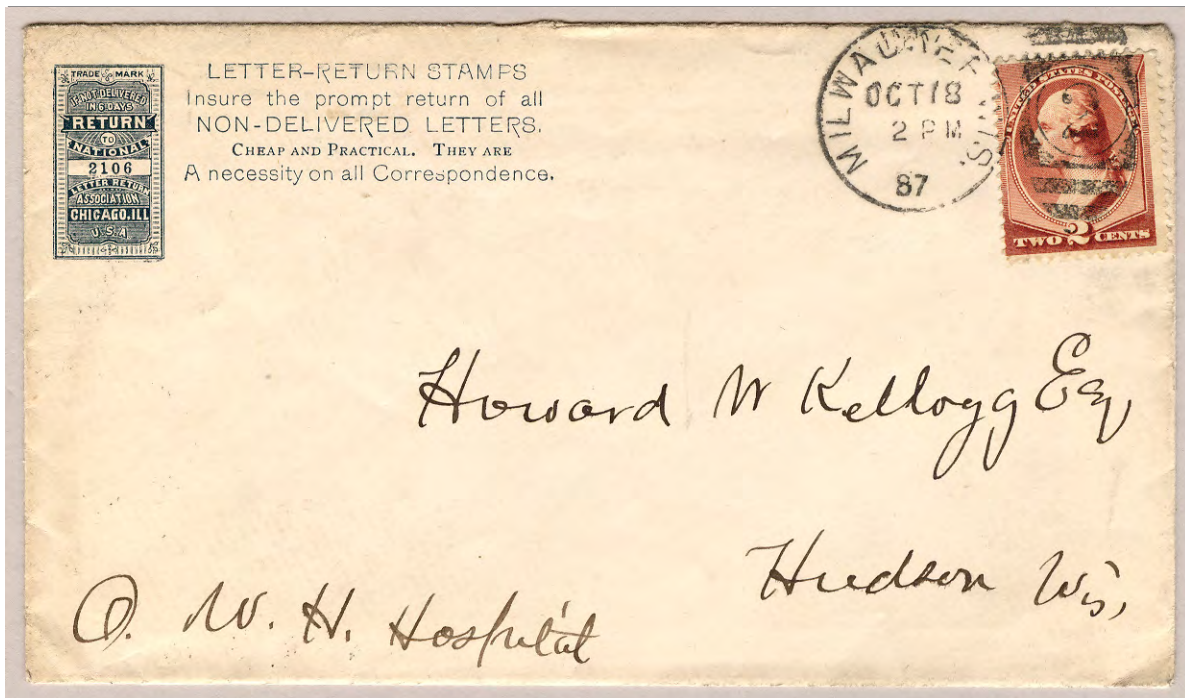 TRADE MARK
IF NOT DELIVERED
IN 6 DAYS
RETURN
TO
NATIONAL
2106
LETTER RETURN
ASSOCIATION
CHICAGO, ILL
U.S.A
LETTER-RETURN STAMPS
Insure the prompt return of all
NON-DELIVERED LETTERS.
CHEAP AND PRACTICAL. THEY ARE
A necessity on all Correspondence.
MILWAUKEE WIS.
OCT 18
2 PM
87
UNITED STATES POSTAGE
TWO 2 CENTS
Howard W Kellogg Esq
Hudson Wis,
O. W. H. Hospital